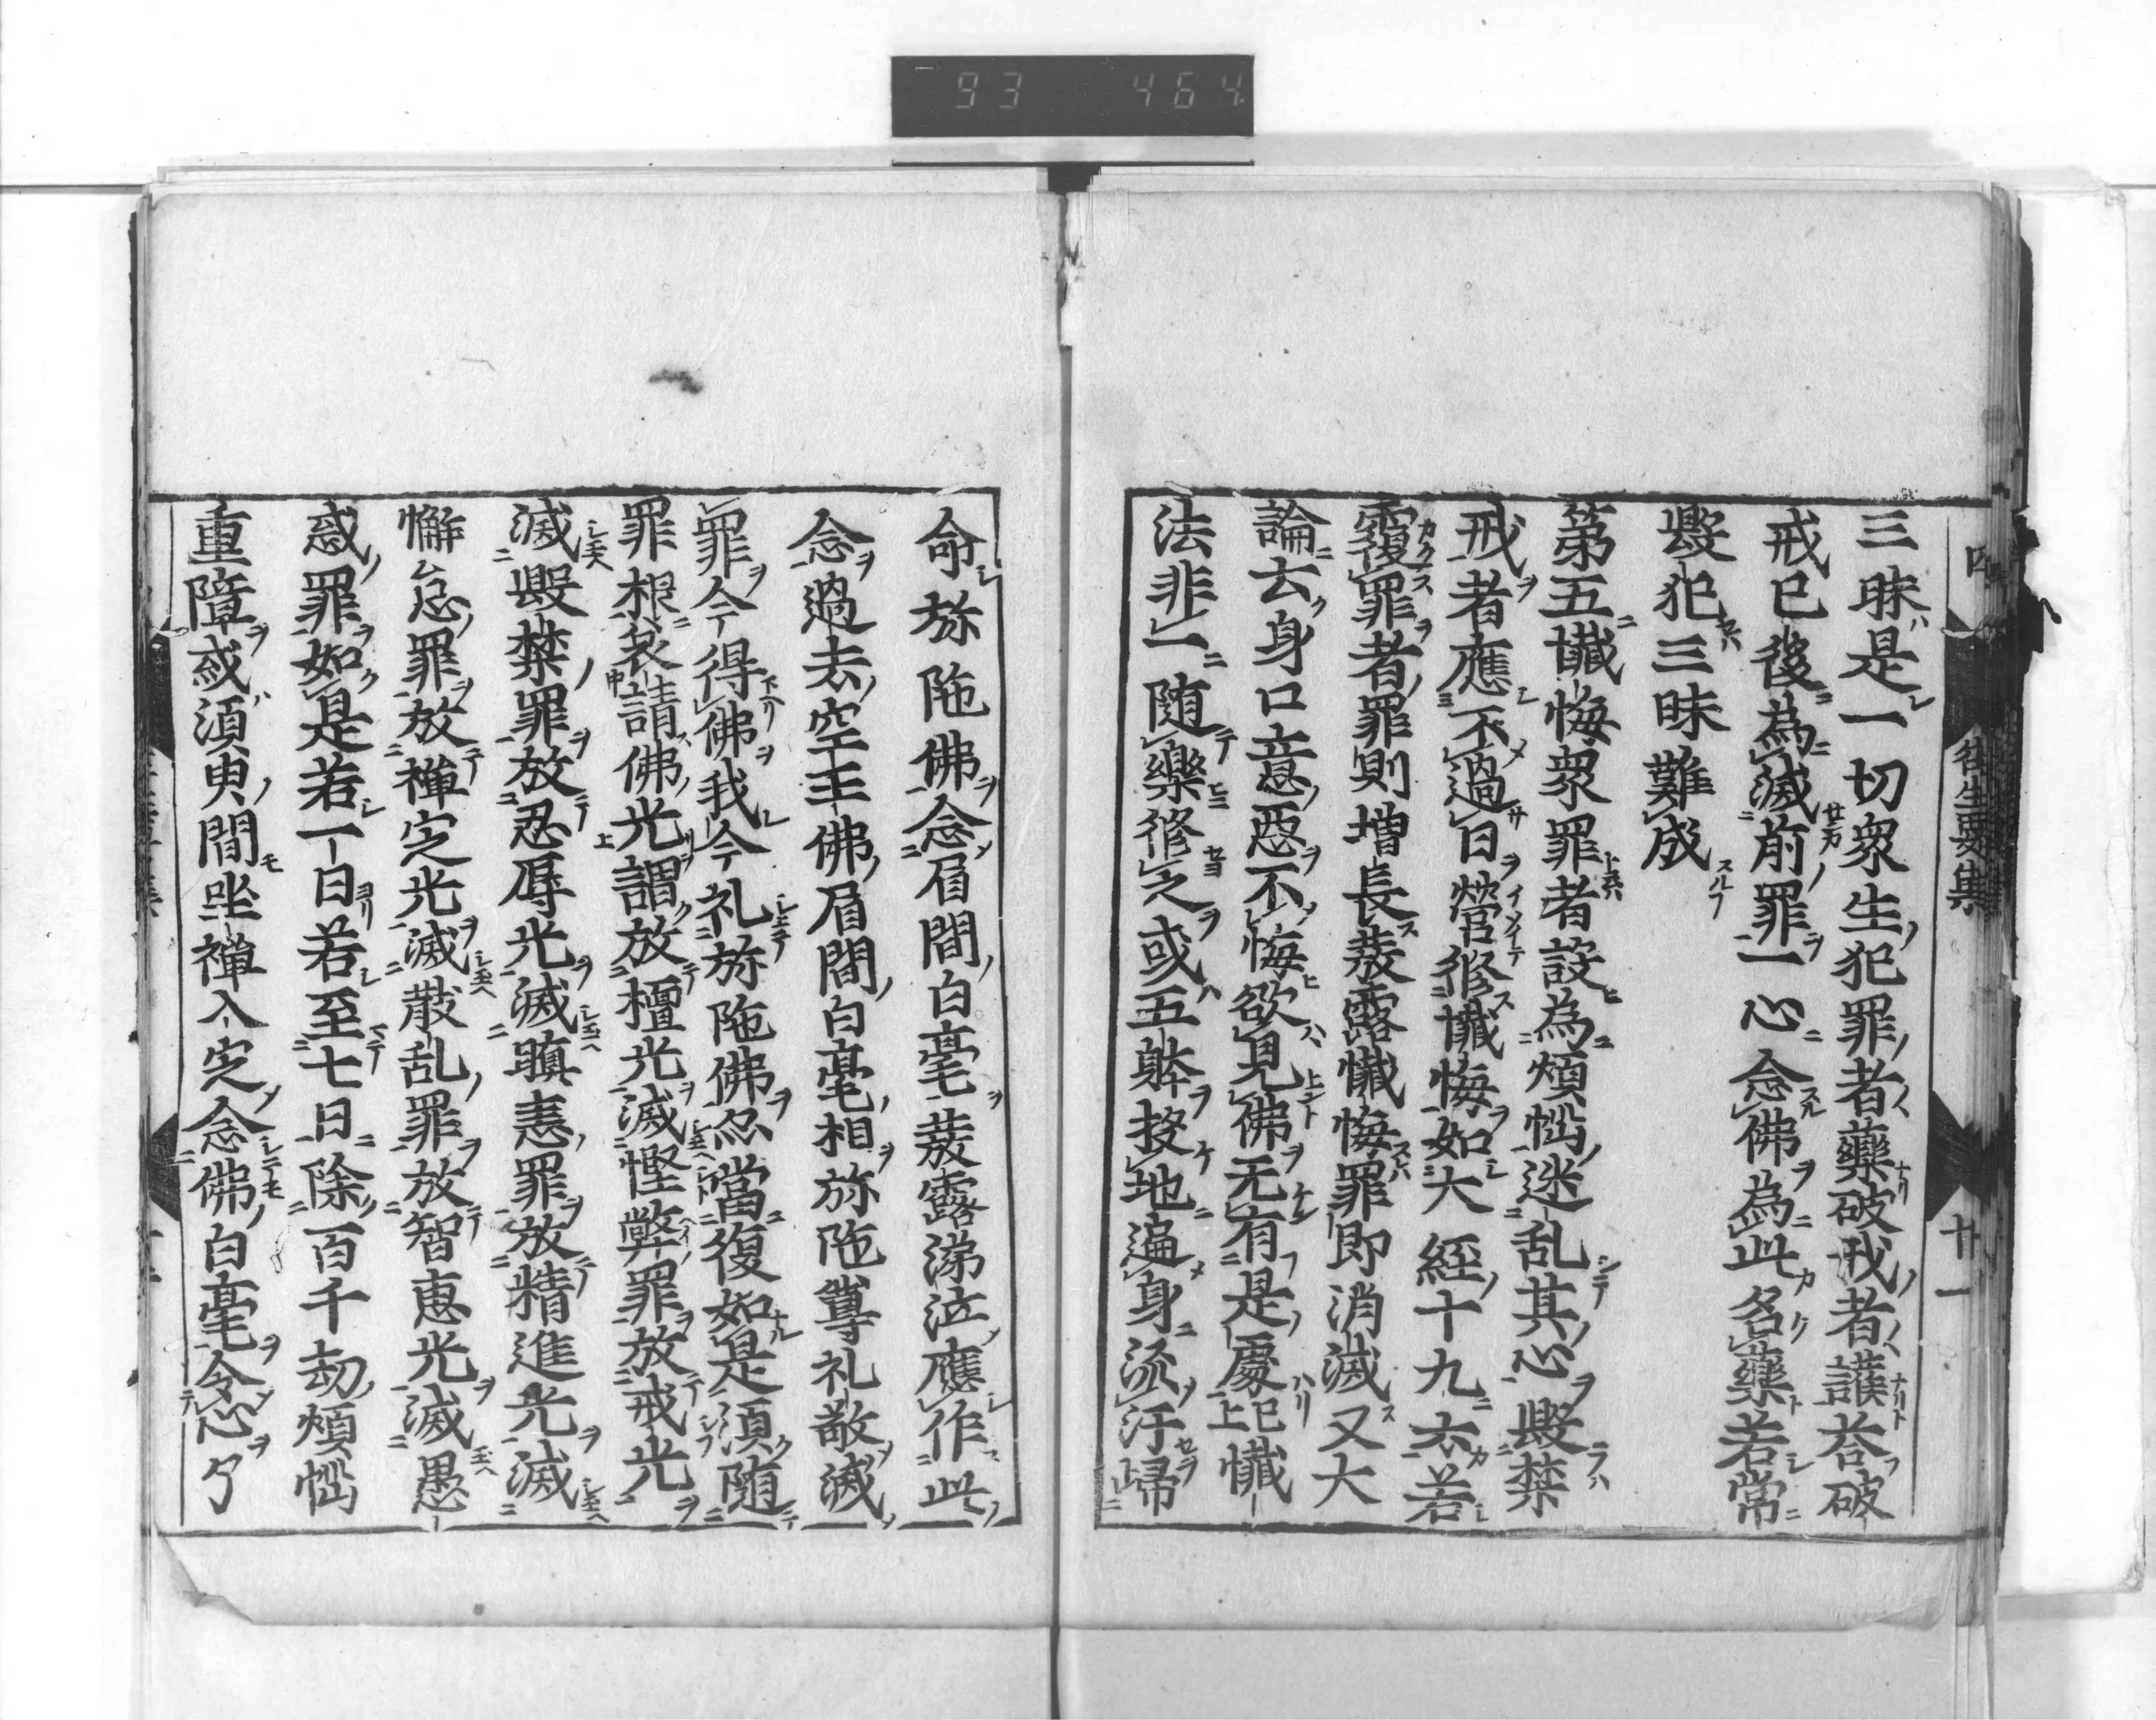 93 464
四 往生要集 廿一
三昧是一切衆生犯罪者藥破戒者護荅破
戒已後為滅前罪一心念佛為此名藥若常
毀犯三昧難成
第五懺悔衆罪者設為煩惱迷乱其心毀禁
戒者應不過日營修懺悔如大經十九云若
覆罪者罪則増長䟦露懺悔罪即消滅又大
論云身口意惡不悔欲見佛无有是處已上懺
法非一随樂修之或五躰投地遍身流汗歸
命弥陁佛念眉間白毫發露涕泣應作此
念過去空王佛眉間白毫相弥陁尊礼敬滅
罪今得佛我今礼弥陁佛忽當復如是須随
罪根哀請佛光謂放檀光滅慳弊罪放戒光
滅毀禁罪放忍辱光滅瞋恚罪放精進光滅
懈怠罪放禅定光滅散乱罪放智恵光滅愚
惑罪如是若一日若至七日除百千劫煩惱
重障或須臾間坐禅入定念佛白毫令心了